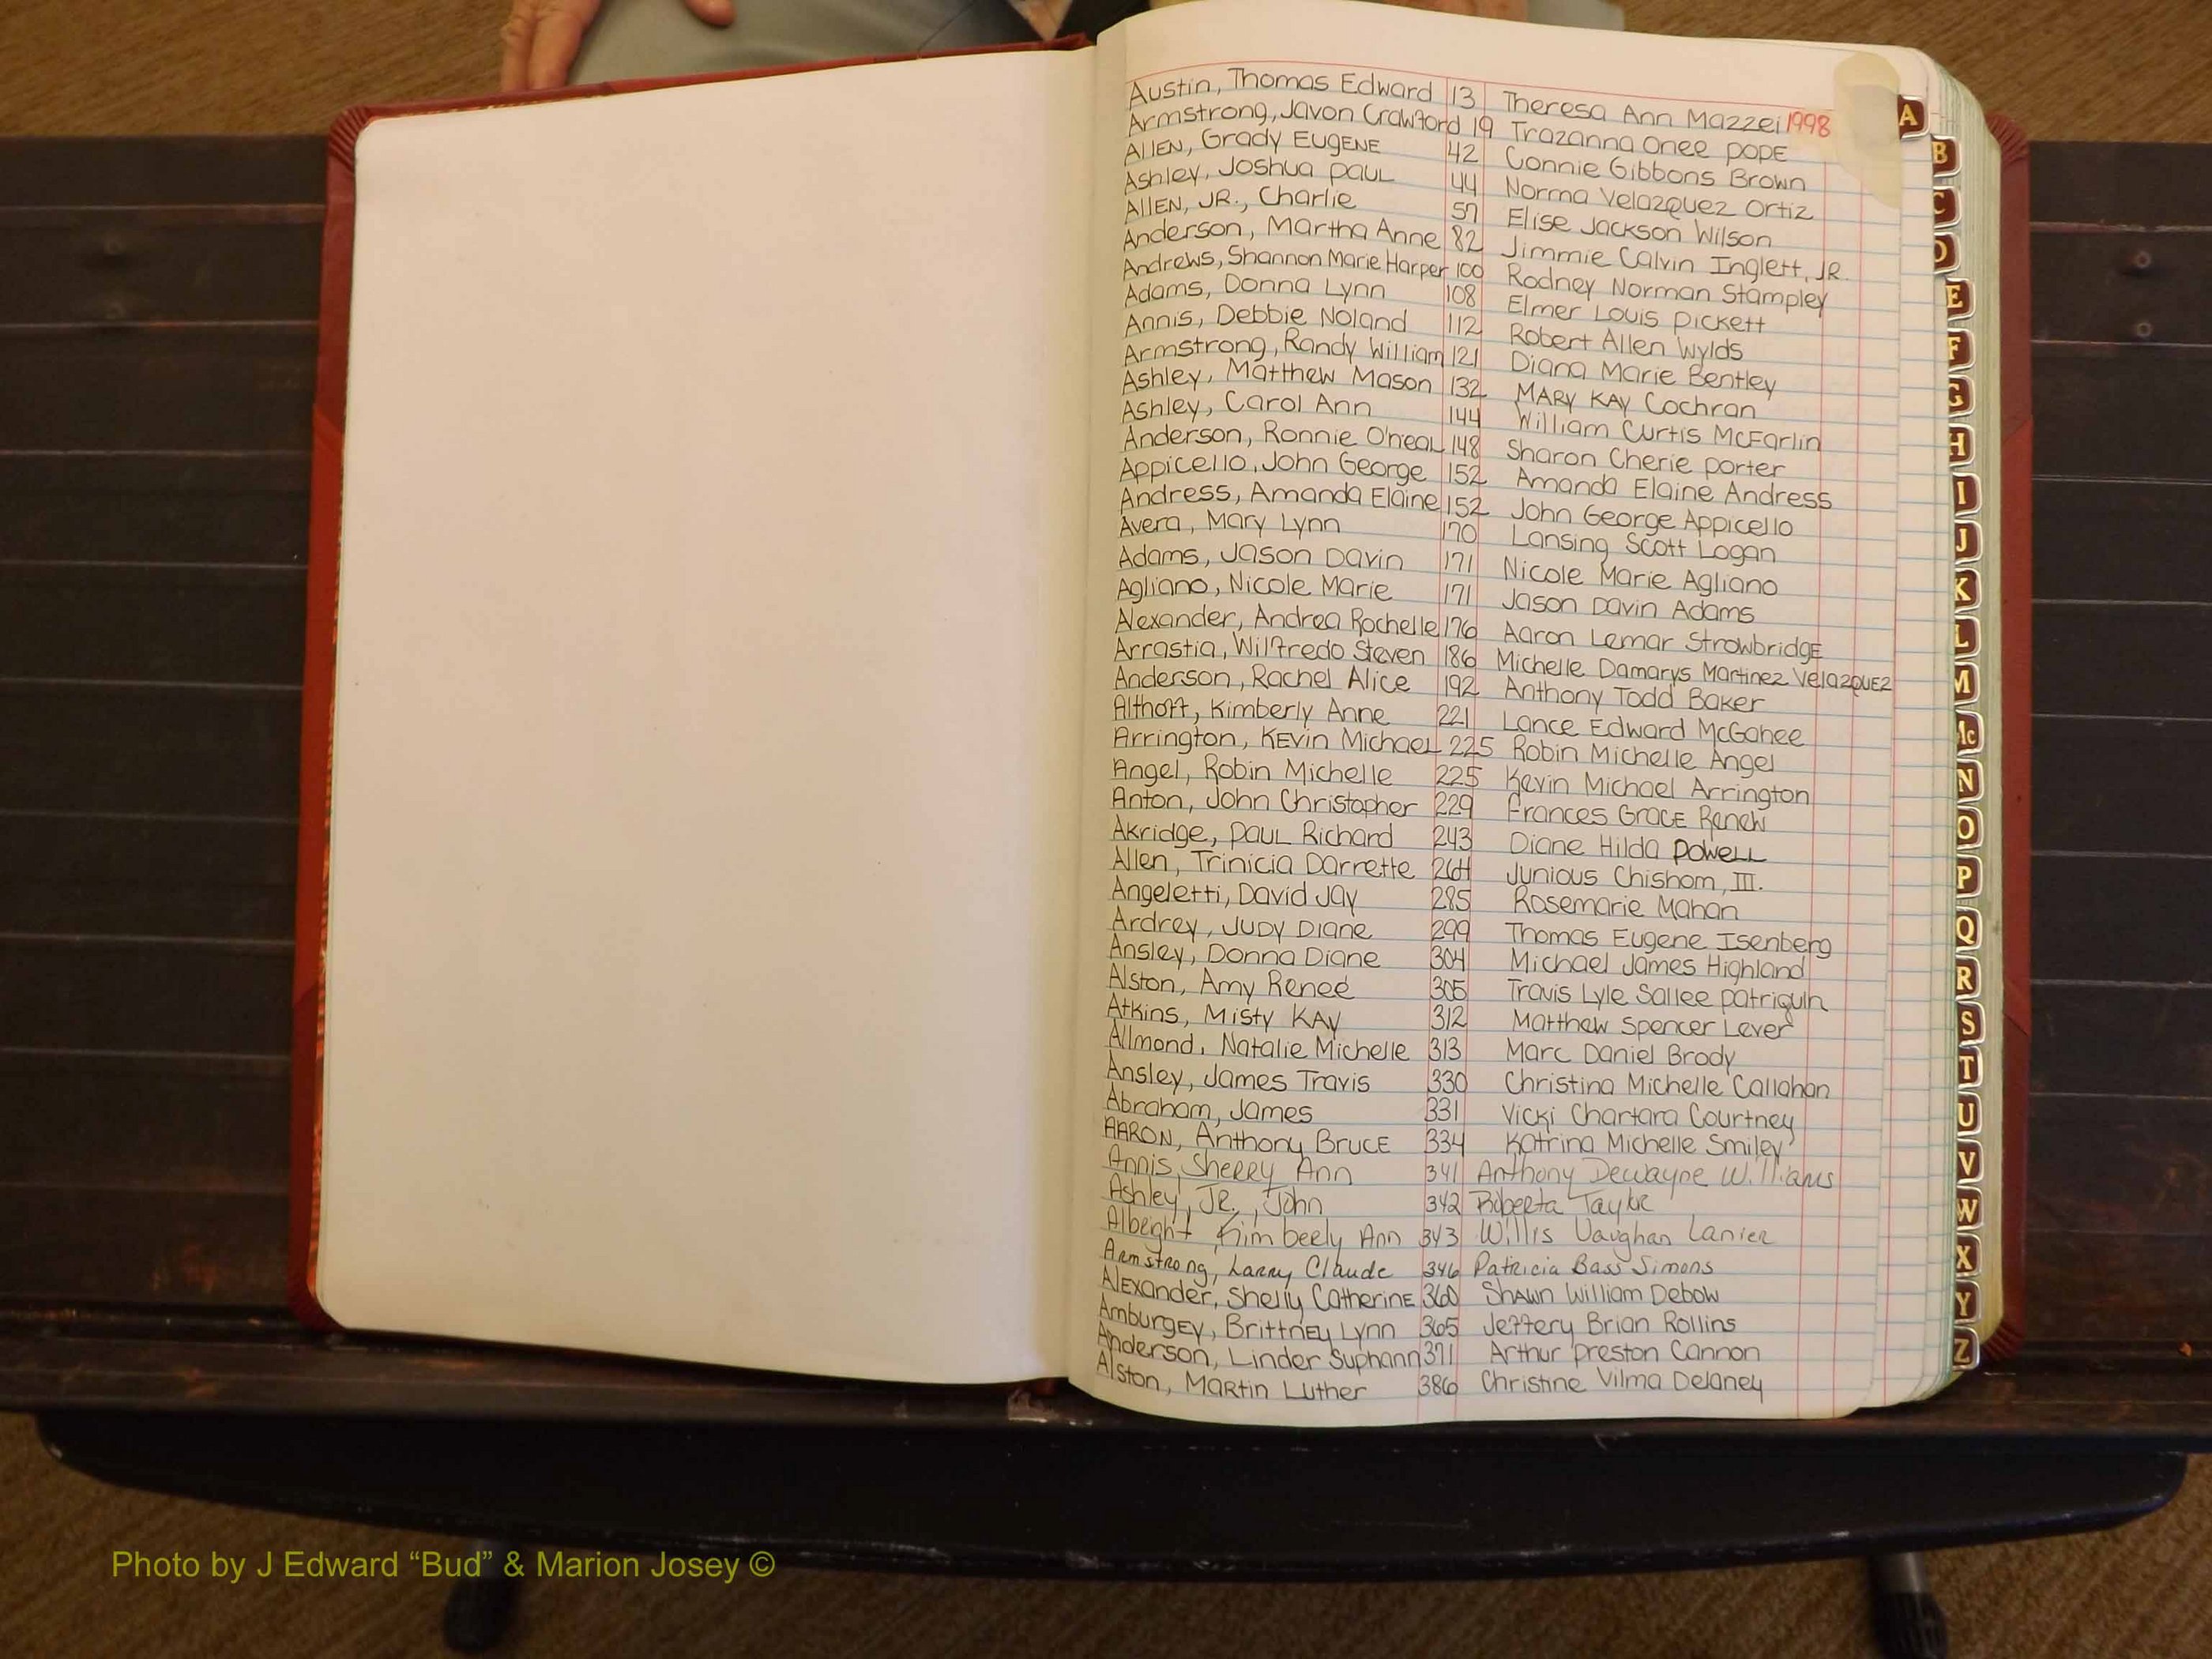 Austin, Thomas Edward 13 Theresa Ann Mazzei 1998
Armstrong, Javon Crawford 19 Trazanna Onee Pope
Allen, Grady Eugene 42 Connie Gibbons Brown
Ashley, Joshua Paul 44 Norma Velazquez Ortiz
Allen, Jr., Charlie 57 Elise Jackson Wilson
Anderson, Martha Anne 82 Jimmie Calvin Inglett, Jr.
Andrews, Shannon Marie Harper 100 Rodney Norman Stampley
Adams, Donna Lynn 108 Elmer Louis Pickett
Annis, Debbie Noland 112 Robert Allen Wylds
Armstrong, Randy William 121 Diana Marie Bentley
Ashley, Matthew Mason 132 Mary Kay Cochran
Ashley, Carol Ann 144 William Curtis McFarlin
Anderson, Ronnie O'neal 148 Sharon Cherie Porter
Appicello, John George 152 Amanda Elaine Andress
Andress, Amanda Elaine 152 John George Appicello
Avera, Mary Lynn 170 Lansing Scott Logan
Adams, Jason Davin 171 Nicole Marie Agliano
Agliano, Nicole Marie 171 Jason Davin Adams
Alexander, Andrea Rochelle 176 Aaron Lemar Strowbridge
Arrastia, Wilfredo Steven 186 Michelle Damarys Martinez Velazquez
Anderson, Rachel Alice 192 Anthony Todd Baker
Althoff, Kimberly Anne 221 Lance Edward McGahee
Arrington, Kevin Michael 225 Robin Michelle Angel
Angel, Robin Michelle 225 Kevin Michael Arrington
Anton, John Christopher 229 Frances Grace Renew
Akridge, Paul Richard 243 Diane Hilda Powell
Allen, Trinicia Darrette 264 Junious Chishom, III.
Angeletti, David Jay 285 Rosemarie Mahan
Ardrey, Judy Diane 299 Thomas Eugene Isenberg
Ansley, Donna Diane 304 Michael James Highland
Alston, Amy Reneé 305 Travis Lyle Sallee Patriquin
Atkins, Misty Kay 312 Matthew Spencer Lever
Allmond, Natalie Michelle 313 Marc Daniel Brody
Ansley, James Travis 330 Christina Michelle Callahan
Abraham, James 331 Vicki Chartara Courtney
Aaron, Anthony Bruce 334 Katrina Michelle Smiley
Annis, Sherry Ann 341 Anthony Dewayne Williams
Ashley, Jr., John 342 Roberta Taylor
Albright, Kimberly Ann 343 Willis Vaughan Lanier
Armstrong, Larry Claude 346 Patricia Bass Simons
Alexander, Shelly Catherine 360 Shawn William Debow
Amburgey, Brittney Lynn 365 Jeffery Brian Rollins
Anderson, Linder Suphann 371 Arthur Preston Cannon
Alston, Martin Luther 386 Christine Vilma Delaney
A
B
C
D
E
F
G
H
I
J
K
L
M
Mc
N
O
P
Q
R
S
T
U
V
W
X
Y
Z
Photo by J Edward “Bud” & Marion Josey ©